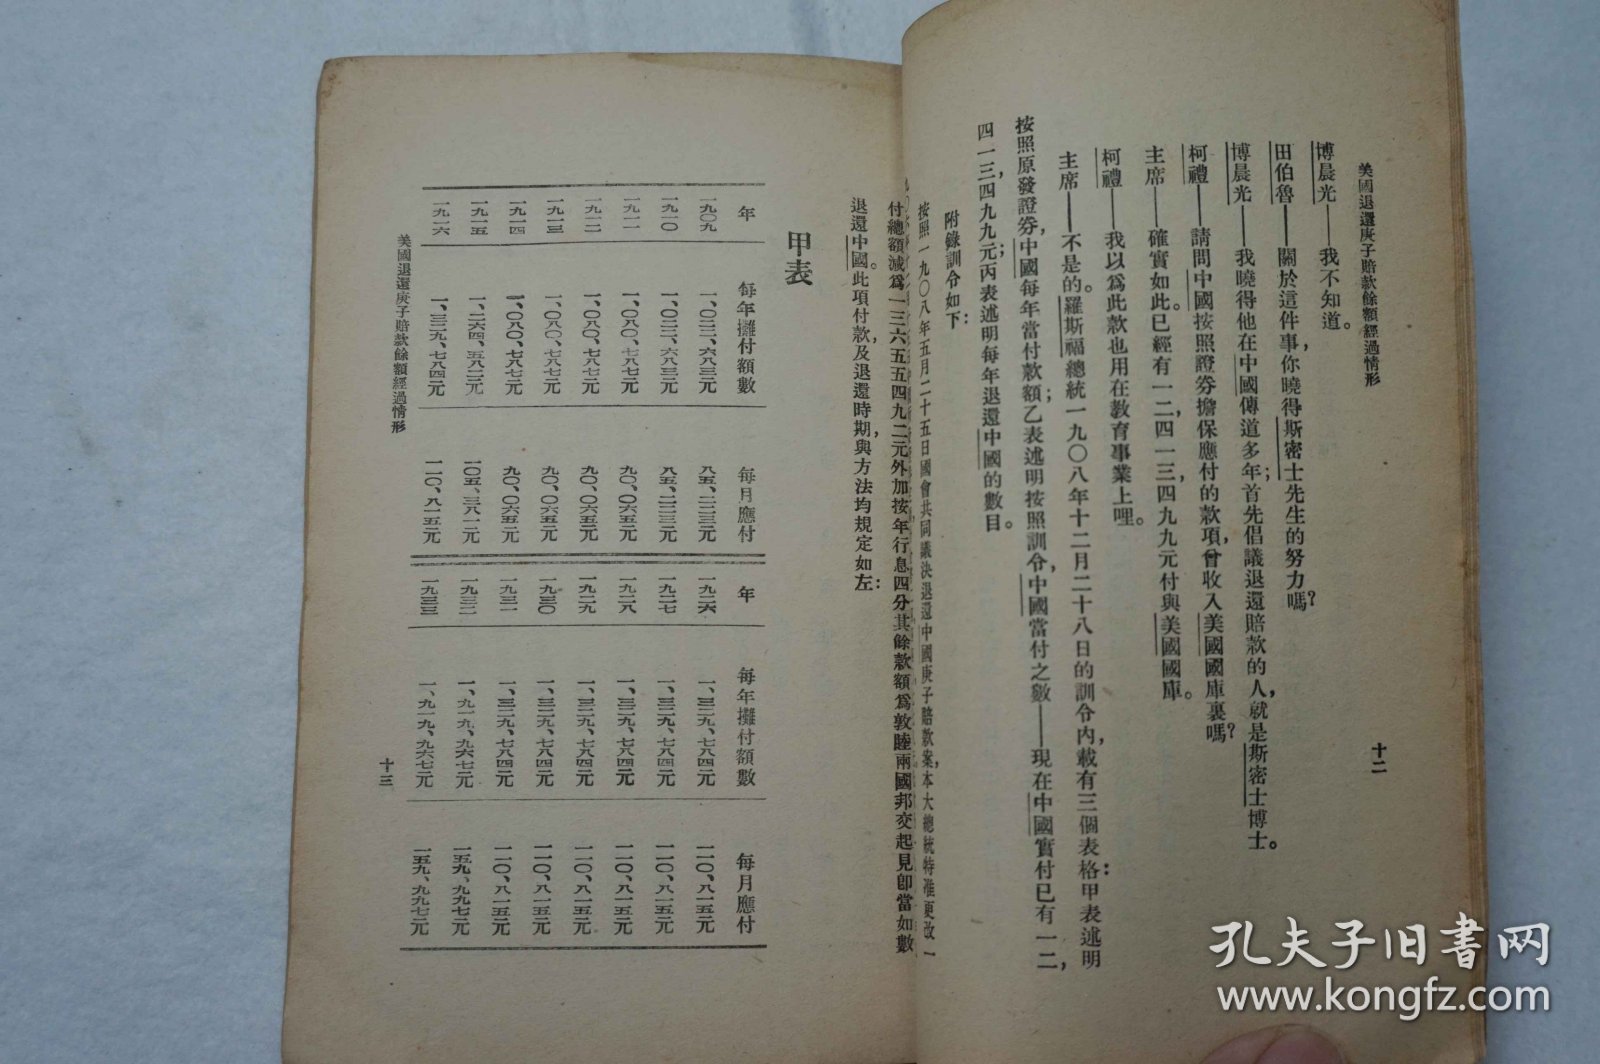 美國退還庚子賠款餘額經過情形
十二
博晨光——我不知道。
田伯魯——關於這件事，你曉得斯密士先生的努力嗎？
博晨光——我曉得他在中國傳道多年；首先倡議退還賠款的人，就是斯密士博士。
柯禮——請問中國按照證券擔保應付的款項，曾收入美國國庫裏嗎？
主席——確實如此。已經有一二，四一三，四九九元付與美國國庫。
柯禮——我以爲此款也用在教育事業上哩。
主席——不是的。羅斯福總統一九〇八年十二月二十八日的訓令內，載有三個表格：甲表述明
按照原發證券，中國每年當付款額；乙表述明按照訓令，中國當付之數——現在中國實付已有一二，
四一三四九九元；丙表述明每年退還中國的數目。
附錄訓令如下：
按照一九〇八年五月二十五日國會共同議決退還中國庚子賠款案，本大總統特准更改一
付總額減爲一三六五五四九二元外加按年行息四分其餘款額爲敦睦兩國邦交起見卽當如數
退還中國。此項付款及退還時期與方法均規定如左：
甲表
年 每年攤付額數 每月應付 年 每年攤付額數 每月應付
一九〇九 一、〇二二、六八三元 八五、二二三元 一九二六 一、三二九、七八四元 一一〇、八一五元
一九一〇 一、〇二二、六八三元 八五、二二三元 一九二七 一、三二九、七八四元 一一〇、八一五元
一九一一 一、〇八〇、七八七元 九〇、〇六五元 一九二八 一、三二九、七八四元 一一〇、八一五元
一九一二 一、〇八〇、七八七元 九〇、〇六五元 一九二九 一、三二九、七八四元 一一〇、八一五元
一九一三 一、〇八〇、七八七元 九〇、〇六五元 一九三〇 一、三二九、七八四元 一一〇、八一五元
一九一四 一、〇八〇、七八七元 九〇、〇六五元 一九三一 一、三二九、七八四元 一一〇、八一五元
一九一五 一、二六四、五八二元 一〇五、三八二元 一九三二 一、九一九、九六七元 一五九、九九七元
一九一六 一、三二九、七八四元 一一〇、八一五元 一九三三 一、九一九、九六七元 一五九、九九七元
美國退還庚子賠款餘額經過情形
十三
孔夫子旧書网
www.kongfz.com